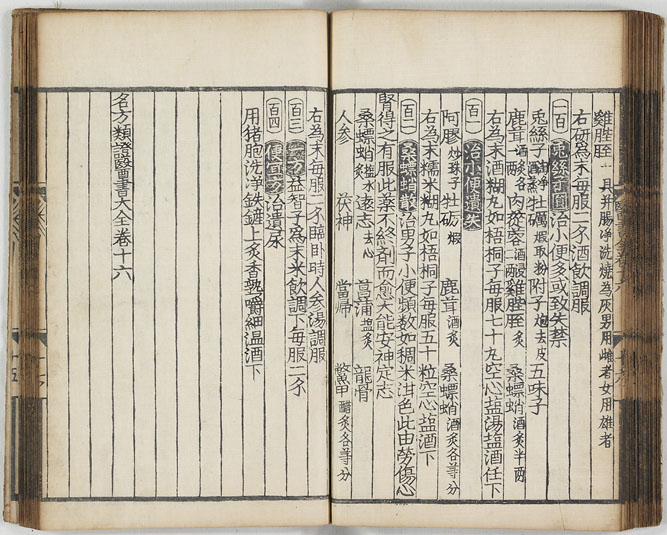 雞膍胵一具并腸淨洗燒為灰男用雌者女用雄者
右研為末每服二錢酒飲調服
一百 兎絲子圓 治小便多或致失禁
兎絲子酒浸蒸 牡礪煅取粉 附子炮去皮 五味子
鹿茸酒炙各一兩 肉蓯蓉酒浸二兩 雞膍胵炙 桑螵蛸酒炙半兩
右為末酒糊丸如梧桐子每服七十丸空心盐湯盐酒任下
百一 治小便遺失
阿膠炒珠子 牡礪煅 鹿茸酒炙 桑螵蛸酒炙各等分
右為末糯米糊丸如梧桐子每服五十粒空心盐酒下
百二 桑螵蛸散 治男子小便頻数如稠米泔色此由勞傷心
腎得之有服此藥不終劑而愈大能安神定志
桑螵蛸盐水炙 遠志去心 菖蒲盐炙 龍骨
人参 茯神 當歸 鱉甲醋炙各等分
右為末每服二錢臨卧時人参湯調服
百三 益智子為末米飲調下每服二錢
百四 便宜方 治遺尿
用猪胞洗淨鉄鏟上炙香熟嚼細温酒下
名方類證醫書大全卷十六